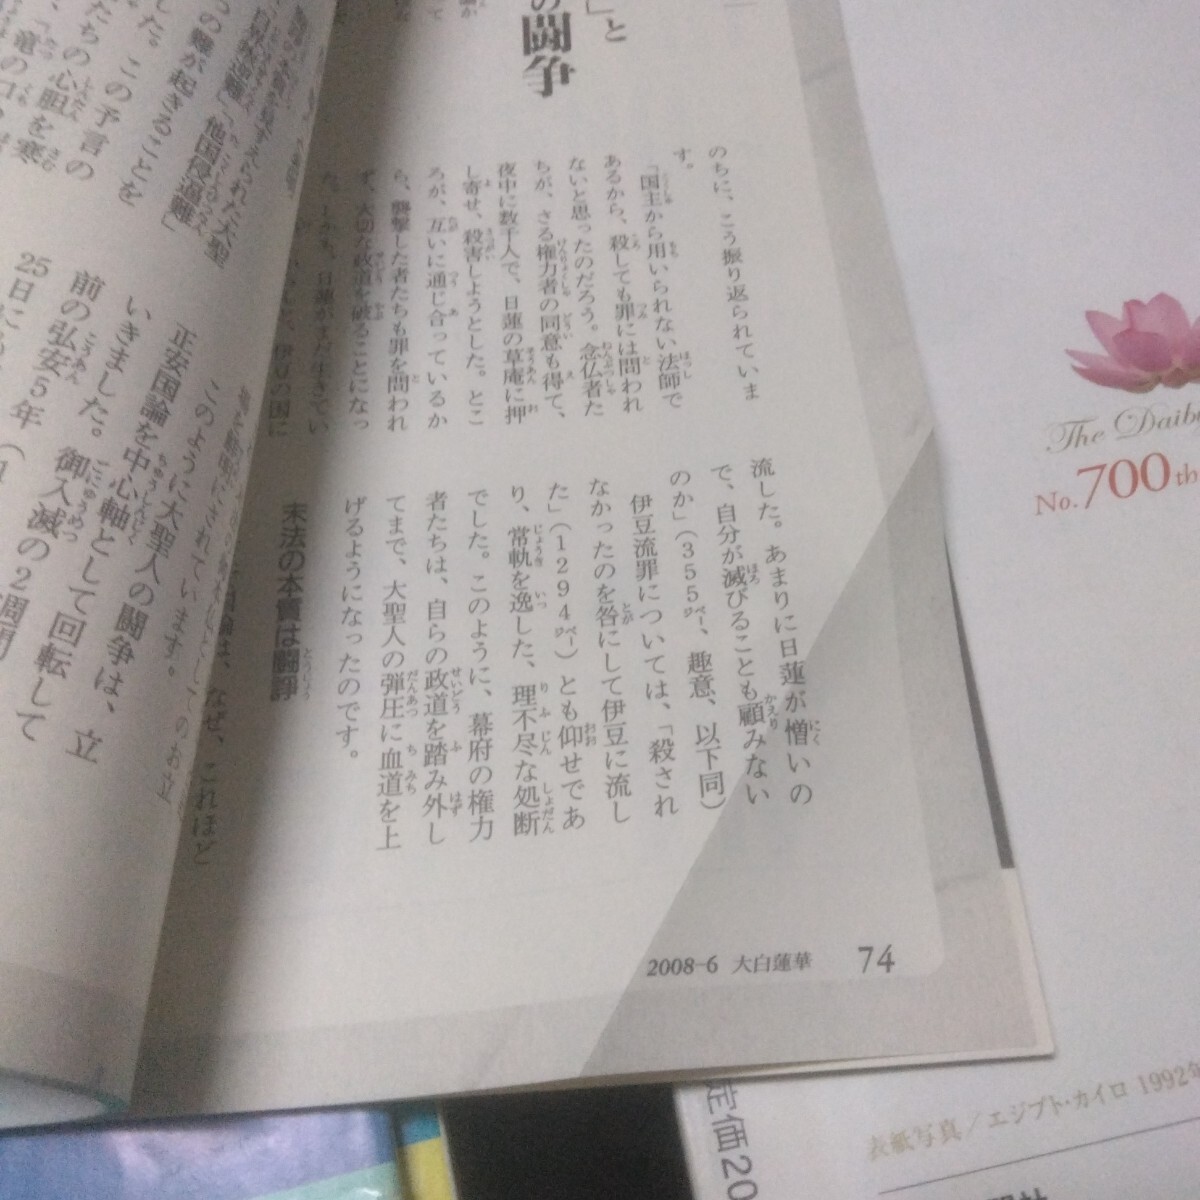 」と
の闘争
のちに、こう振り返られていま
す。
「国主から用いられない法師で
あるから、殺しても罪には問われ
ないと思ったのだろう。念仏者た
ちが、さる権力者の同意も得て、
夜中に数千人で、日蓮の草庵に押
し寄せ、殺害しようとした。とこ
ろが、互いに通じ合っているか
ら、襲撃した者たちも罪を問われ
ず、大切な政道を破ることになっ
た。しかも、日蓮がまだ生きてい
伊豆の国に
流した。あまりに日蓮が憎いの
で、自分が滅びることも顧みない
のか」(355㌻、趣意、以下同)
伊豆流罪については、「殺され
なかったのを咎にして伊豆に流し
た」(1294㌻)とも仰せであ
り、常軌を逸した、理不尽な処断
でした。このように、幕府の権力
者たちは、自らの政道を踏み外し
てまで、大聖人の弾圧に血道を上
げるようになったのです。
末法の本質は闘諍
なぜ、これほど
2008-6 大白蓮華 74
「他国侵逼難」
つの難が起きることを
した。この予言の
たちの心胆を寒
竜の口
このように大聖人の闘争は、立
正安国論を中心軸として回転して
いきました。御入滅の2週間
前の弘安5年
25日に
The Daib
No.700th
表紙写真/エジプト・カイロ 1992年
定価20